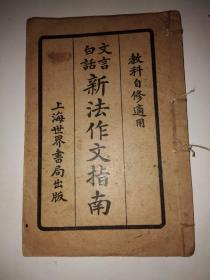 教科自修適用
文言
白話
新法作文指南
上海世界書局出版